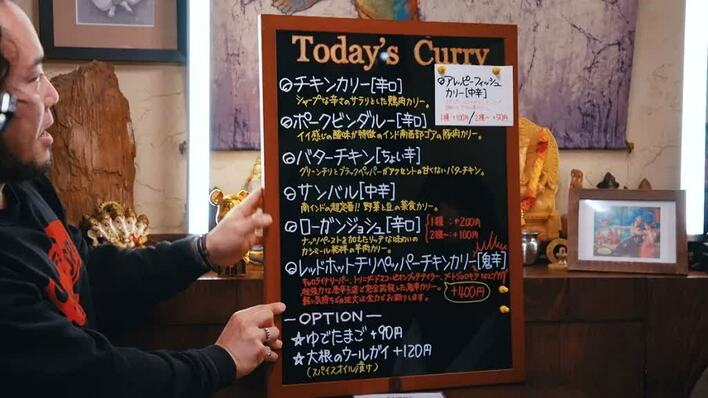 Today's Curry
チキンカリー[辛口]
シャープな辛さのサラリとした鶏肉カリー。
アレッピーフィッシュ
カリー[中辛]
1種+100円/2種〜+50円
ポークビンダルー[辛口]
イイ感じの酸味が特徴のインド南西部ゴアの豚肉カリー。
バターチキン[ちょい辛]
グリーンチリとブラックペッパーがアクセントの甘くないバターチキン。
サンバル[中辛]
南インドの超定番!!野菜と豆の菜食カリー。
ローガンジョシュ[辛口]
1種:+200円
2種〜:+100円
ナッツペーストを加えたリッチな味わいの
カシミール発祥の羊肉カリー。
レッドホットチリペッパーチキンカリー[鬼辛]
キャロライナリーパー、トリニダードスコーピオン
軽い気持ちでの注文は全力でお断りします。
+400円
OPTION
☆ゆでたまご+90円
☆大根のウールガイ+120円
(スパイスオイル漬け)